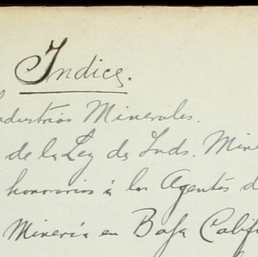 Indice.
Industrias Minerales.
de la Ley de Inds. Mine
honorarios á los Agentes d
Minería en Baja Calif